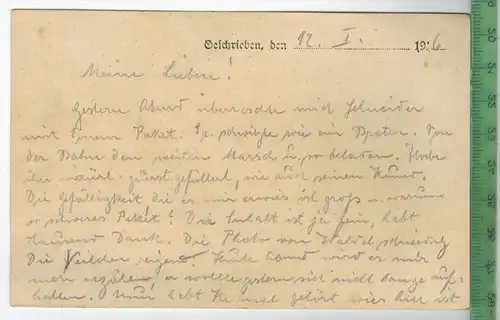 Geschrieben, den 12. I. 1916
Meine Lieben!
Gestern Abend überraschte mich Schneider
mit Einem Paket. Er schwitzte wie ein Braten. Von
der Bahn den weiten Marsch u. so beladen. Habe
ihn zuerst gefüttert, wie auch seinen Hund.
Die Gefälligkeit die er mir erwies ist groß u. warum
so schweres Paket? Der Inhalt ist ja fein, habt
tausend Dank. Die Photo von
Die Heute Abend wird er mir
mehr erzählen, er wollte gestern sich nicht lange auf-
halten. Nun habt Ihr mal gehört wies hier ist